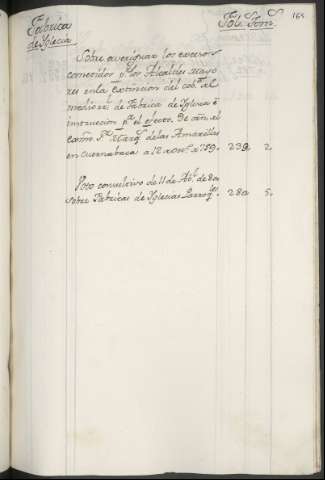 Fabrica
de Yglecia
Fol. Tom.
165
Sobre averiguar los excesos
cometidos pr. los Alcaldes mayo
res en la extincion del
medio rl. de Fabrica de Yglecia é
instruccion pa. el efecto. De orñ. el
Exmo. Sr. Marqs. de las Amarillas
en Cuernabaca a 12 759. 239. 2.
Voto consultivo de 11 de Ab. de 80
sobre Fabricas de Yglecias Parroqs. 280 5.